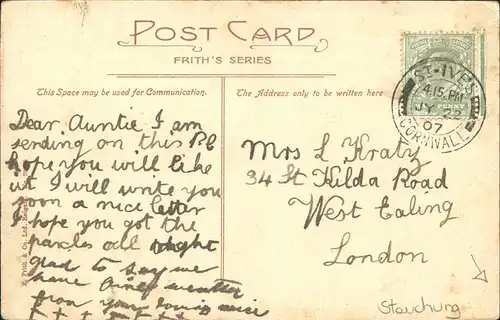 POST CARD
FRITH'S SERIES
This Space may be used for Communication.
The Address only to be written here
ST. IVES
4.15 PM
JY 22
07
CORNWALL
PENNY
Dear Auntie I am
sending on this P.C
hope you will like
it I will write you
soon a nice letter
I hope you got the
parcles all right
glad to say we
have weather
from your loving niece
Mrs L Kratz
34 St Kilda Road
West Ealing
London
F. Frith & Co. Ltd.,